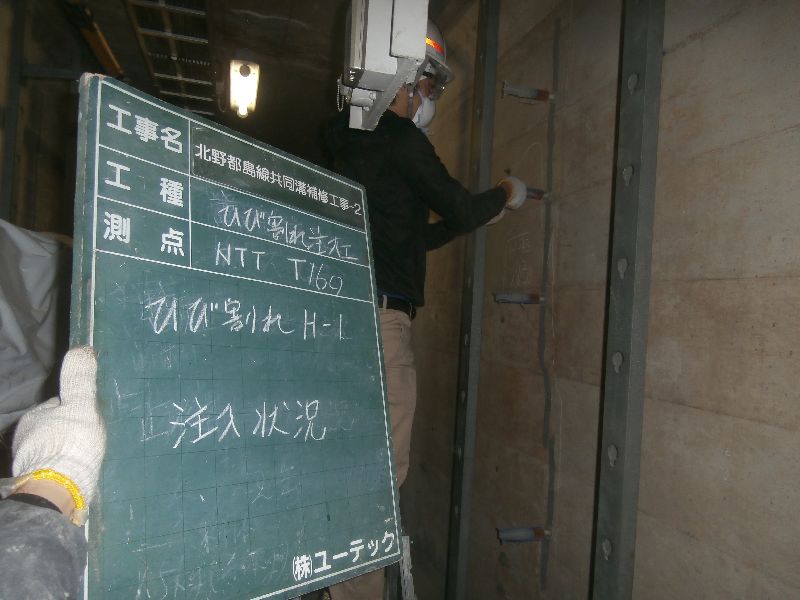 工事名 北野都島線共同溝補修工事-2
工種 ひび割れ注入工
測点 NTT T169
ひび割れ H-1
注入状況
㈱ユーテック